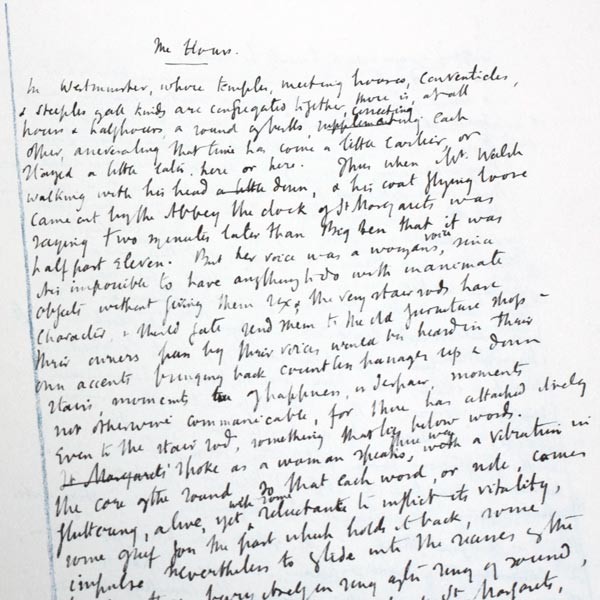 The Hours.
In Westminster, where temples, meeting houses, conventicles,
& steeples of all kinds are congregated together, there is, at all
hours & halfhours, a round of bells, correcting each
other, asseverating that time has come a little earlier, or
stayed a little later, here or here. Thus when Mr. Walsh
walking with his head a little down, & his coat flying loose
came out by the Abbey the clock of St Margarets was
saying two minutes later than Big Ben that it was
half past eleven. But her voice was a womans voice, since
it is impossible to have anything to do with inanimate
objects without giving them sex; the very stair rods have
character, & should fate send them to the old furniture shops -
their owners pass by their voices would be heard in their
own accents bringing back countless passages up & down
stairs, moments of happiness, or despair, moments
not otherwise communicable, for there has attached itself
Even to the stair rod, something that lies below words.
St Margarets spoke as a woman speaks, there was a vibration in
the core of the sound, so that each word, or note, comes
fluttering, alive, yet with some reluctance to inflict its vitality,
some grief for the past which holds it back, some
impulse nevertheless to glide into the recesses of the
ring after ring of sound,
St Margarets,